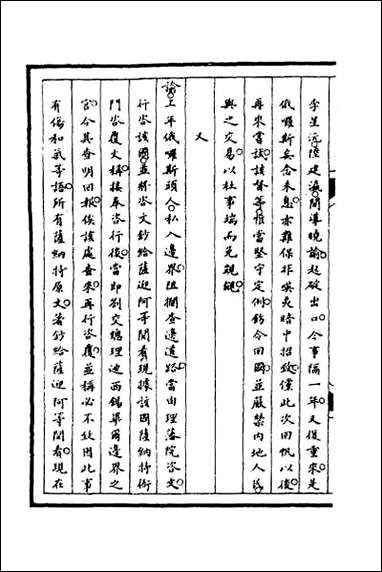 李星沅陸建瀛開導曉諭起碇出口今事隔一年又復重來是
俄囉斯妄念未息亦難保非吳夷暗中招致僅此次回帆以後
再來嘗試該督等惟當堅守定例飭令回國並嚴禁内地人民
與之交易以杜事端而免覬覦
又
諭上年俄囉斯頭人私入邊界阻攔查邊道路當由理藩院咨文
行咨該國並將咨文鈔給薩迎阿等閱看現據該國薩納特衙
門咨覆文稱接奉咨行後當即劄交總理迪西錫畢爾邊界之
官令其查明回報俟該處查來再行咨覆並稱必不致因此事
有傷和氣等語所有薩納特原文著鈔給薩迎阿等閱看現在